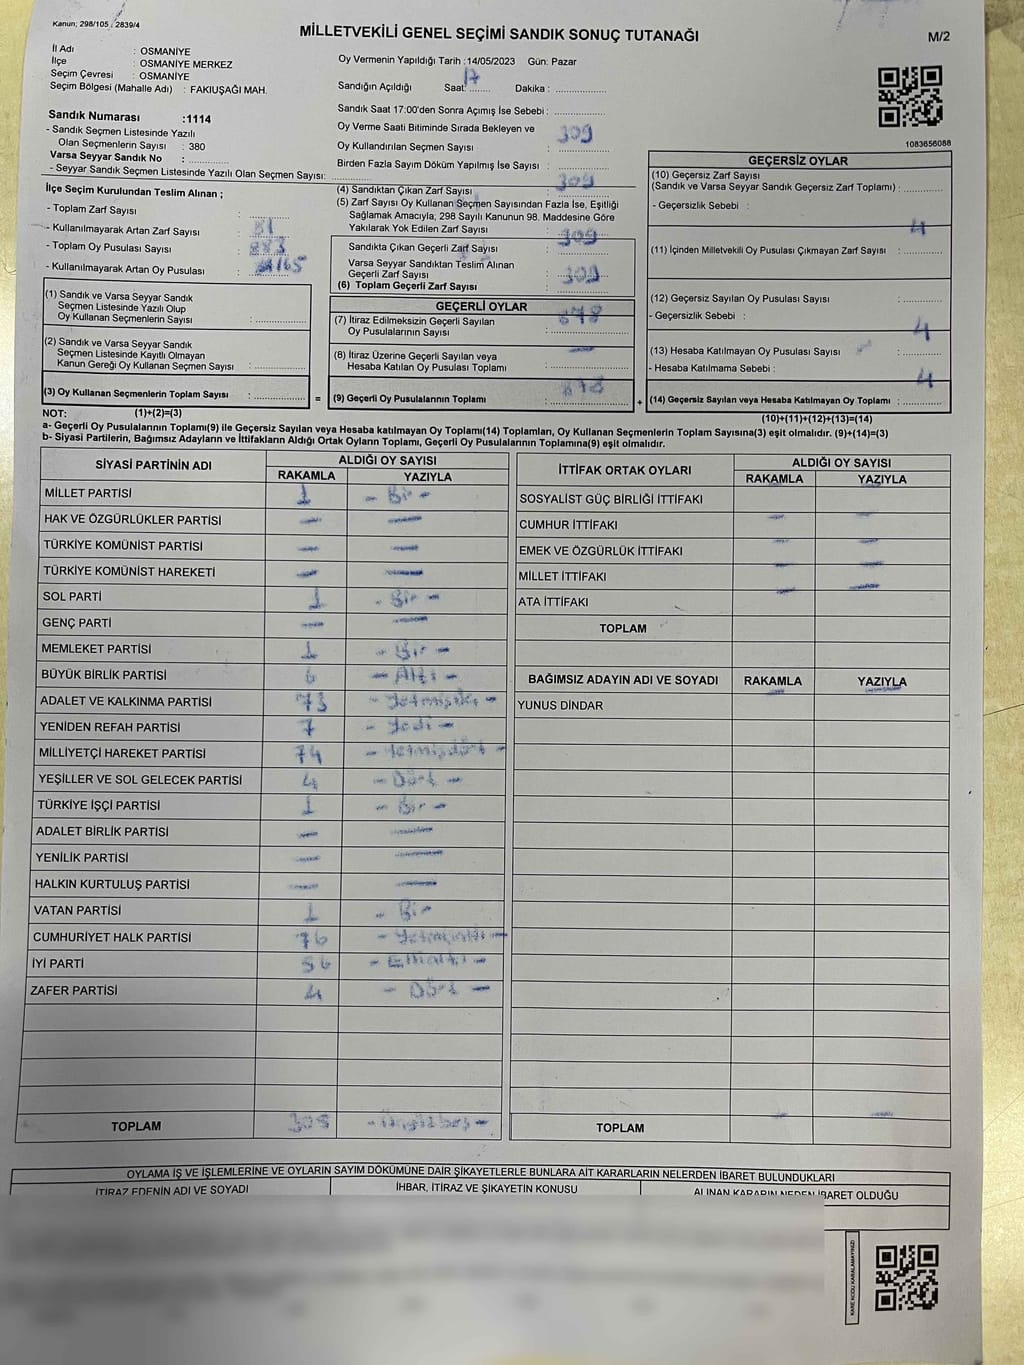 Kanun; 298/105 , 2839/4
MİLLETVEKİLİ GENEL SEÇİMİ SANDIK SONUÇ TUTANAĞI
M/2
İl Adı : OSMANİYE
İlçe : OSMANİYE MERKEZ
Seçim Çevresi : OSMANİYE
Seçim Bölgesi (Mahalle Adı) : FAKIUŞAĞI MAH.
Sandık Numarası :1114
- Sandık Seçmen Listesinde Yazılı
Olan Seçmenlerin Sayısı : 380
Varsa Seyyar Sandık No :
- Seyyar Sandık Seçmen Listesinde Yazılı Olan Seçmen Sayısı:
İlçe Seçim Kurulundan Teslim Alınan ;
- Toplam Zarf Sayısı :
- Kullanılmayarak Artan Zarf Sayısı : 81
- Toplam Oy Pusulası Sayısı : 883
- Kullanılmayarak Artan Oy Pusulası : 165
(1) Sandık ve Varsa Seyyar Sandık
Seçmen Listesinde Yazılı Olup
Oy Kullanan Seçmenlerin Sayısı :
(2) Sandık ve Varsa Seyyar Sandık
Seçmen Listesinde Kayıtlı Olmayan
Kanun Gereği Oy Kullanan Seçmen Sayısı :
(3) Oy Kullanan Seçmenlerin Toplam Sayısı : =
(1)+(2)=(3)
Oy Vermenin Yapıldığı Tarih :14/05/2023 Gün: Pazar
Sandığın Açıldığı Saat: 17 Dakika :
Sandık Saat 17:00'den Sonra Açımış İse Sebebi :
Oy Verme Saati Bitiminde Sırada Bekleyen ve
Oy Kullandırılan Seçmen Sayısı : 309
Birden Fazla Sayım Döküm Yapılmış İse Sayısı :
(4) Sandıktan Çıkan Zarf Sayısı : 309
(5) Zarf Sayısı Oy Kullanan Seçmen Sayısından Fazla İse, Eşitliği
Sağlamak Amacıyla, 298 Sayılı Kanunun 98. Maddesine Göre
Yakılarak Yok Edilen Zarf Sayısı :
Sandıkta Çıkan Geçerli Zarf Sayısı : 309
Varsa Seyyar Sandıktan Teslim Alınan
Geçerli Zarf Sayısı :
(6) Toplam Geçerli Zarf Sayısı : 309
GEÇERLİ OYLAR
(7) İtiraz Edilmeksizin Geçerli Sayılan
Oy Pusulalarının Sayısı :
(8) İtiraz Üzerine Geçerli Sayılan veya
Hesaba Katılan Oy Pusulası Toplamı :
(9) Geçerli Oy Pusulalarının Toplamı : +
1083656088
GEÇERSİZ OYLAR
(10) Geçersiz Zarf Sayısı
(Sandık ve Varsa Seyyar Sandık Geçersiz Zarf Toplamı) :
- Geçersizlik Sebebi :
4
(11) İçinden Milletvekili Oy Pusulası Çıkmayan Zarf Sayısı :
(12) Geçersiz Sayılan Oy Pusulası Sayısı :
- Geçersizlik Sebebi :
4
(13) Hesaba Katılmayan Oy Pusulası Sayısı :
- Hesaba Katılmama Sebebi :
4
(14) Geçersiz Sayılan veya Hesaba Katılmayan Oy Toplamı :
(10)+(11)+(12)+(13)=(14)
NOT:
a- Geçerli Oy Pusulalarının Toplamı(9) ile Geçersiz Sayılan veya Hesaba katılmayan Oy Toplamı(14) Toplamları, Oy Kullanan Seçmenlerin Toplam Sayısına(3) eşit olmalıdır. (9)+(14)=(3)
b- Siyasi Partilerin, Bağımsız Adayların ve İttifakların Aldığı Ortak Oyların Toplamı, Geçerli Oy Pusulalarının Toplamına(9) eşit olmalıdır.
SİYASİ PARTİNİN ADI ALDIĞI OY SAYISI
RAKAMLA YAZIYLA
MİLLET PARTİSİ 1 - Bir -
HAK VE ÖZGÜRLÜKLER PARTİSİ - -
TÜRKİYE KOMÜNİST PARTİSİ - -
TÜRKİYE KOMÜNİST HAREKETİ - -
SOL PARTİ 1 - Bir -
GENÇ PARTİ - -
MEMLEKET PARTİSİ 1 - Bir -
BÜYÜK BİRLİK PARTİSİ 6 - Altı -
ADALET VE KALKINMA PARTİSİ 73
YENİDEN REFAH PARTİSİ 7 - Yedi -
MİLLİYETÇİ HAREKET PARTİSİ 74 - Yetmişdört -
YEŞİLLER VE SOL GELECEK PARTİSİ 4 - Dört -
TÜRKİYE İŞÇİ PARTİSİ 1 - Bir -
ADALET BİRLİK PARTİSİ - -
YENİLİK PARTİSİ - -
HALKIN KURTULUŞ PARTİSİ - -
VATAN PARTİSİ 1 - Bir -
CUMHURİYET HALK PARTİSİ 76 - Yetmişaltı -
İYİ PARTİ 56 - Ellialtı -
ZAFER PARTİSİ 4 - Dört -
TOPLAM 305 - Üçyüzbeş -
İTTİFAK ORTAK OYLARI ALDIĞI OY SAYISI
RAKAMLA YAZIYLA
SOSYALİST GÜÇ BİRLİĞİ İTTİFAKI
CUMHUR İTTİFAKI - -
EMEK VE ÖZGÜRLÜK İTTİFAKI - -
MİLLET İTTİFAKI - -
ATA İTTİFAKI - -
TOPLAM
BAĞIMSIZ ADAYIN ADI VE SOYADI RAKAMLA YAZIYLA
YUNUS DİNDAR
TOPLAM - -
OYLAMA İŞ VE İŞLEMLERİNE VE OYLARIN SAYIM DÖKÜMÜNE DAİR ŞİKAYETLERLE BUNLARA AİT KARARLARIN NELERDEN İBARET BULUNDUKLARI
İTİRAZ EDENİN ADI VE SOYADI İHBAR, İTİRAZ VE ŞİKAYETİN KONUSU ALINAN KARARIN NEDEN İBARET OLDUĞU
KARE KODU KARALAMAYINIZ!